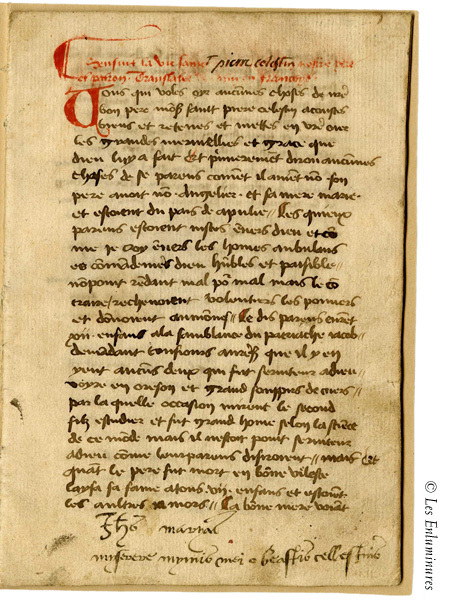 Sensuit la vie sainct piere celestin nostre pere
et patron Translatee de latin en francoys
Tous qui voles oyr aucunes choses de nre
bon pere monsr saint piere celestin acoustes
biens et retenes et mettes en vre cuer
les grandes merveilles et grace que
dieu luy a fait Et primerement diron aucunes
choses de se parens coment il avint no son
pere avoit no angelier et sa mere marie
et estoient du pais de apulie les quieux
parens estoient justes envers dieu et co
me je croy envers les homes ambulans
es comademes dieu hubles et paisible
non point redant mal por mal mais le co
traire rechevoient voluntiers les pouvres
et donoient aumones Le dis parens eurent
xii enfans a la semblance du patriarche iacob
demandant tousiours a nres que il y en
yeut aucuns deux qui fut serviteur a dieu
voyre en oreson et grand souspirs de cuers
par la quelle occasion mirent le second
filz estudier et fut grand home selon la sciece
de ce mode mais il nestoit point serviteur
a dieu come leur parens desiroient mais Et
quat le pere fut mort en bone vielesse
laisa sa fame a tous vii enfans et estoient
les aultres v mors La bone mere voiat
Jhs maria
miserere mei o beatus celestinus
© Les Enluminures